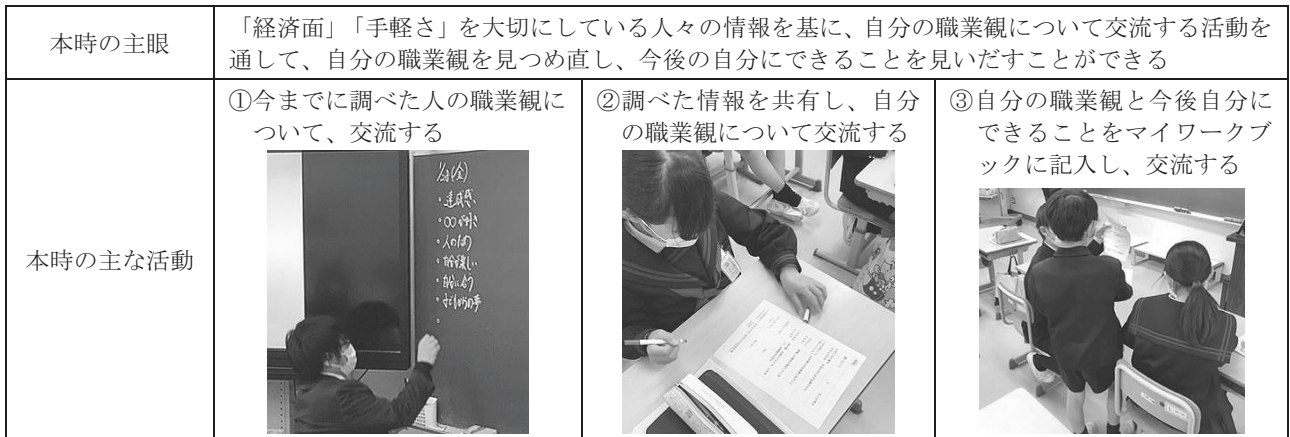 本時の主眼
「経済面」「手軽さ」を大切にしている人々の情報を基に、自分の職業観について交流する活動を
通して、自分の職業観を見つめ直し、今後の自分にできることを見いだすことができる
本時の主な活動
①今までに調べた人の職業観に
ついて、交流する
②調べた情報を共有し、自分
の職業観について交流する
③自分の職業観と今後自分に
できることをマイワークブ
ックに記入し、交流する
(金)
・達成感
・〇〇が好き
・人のため